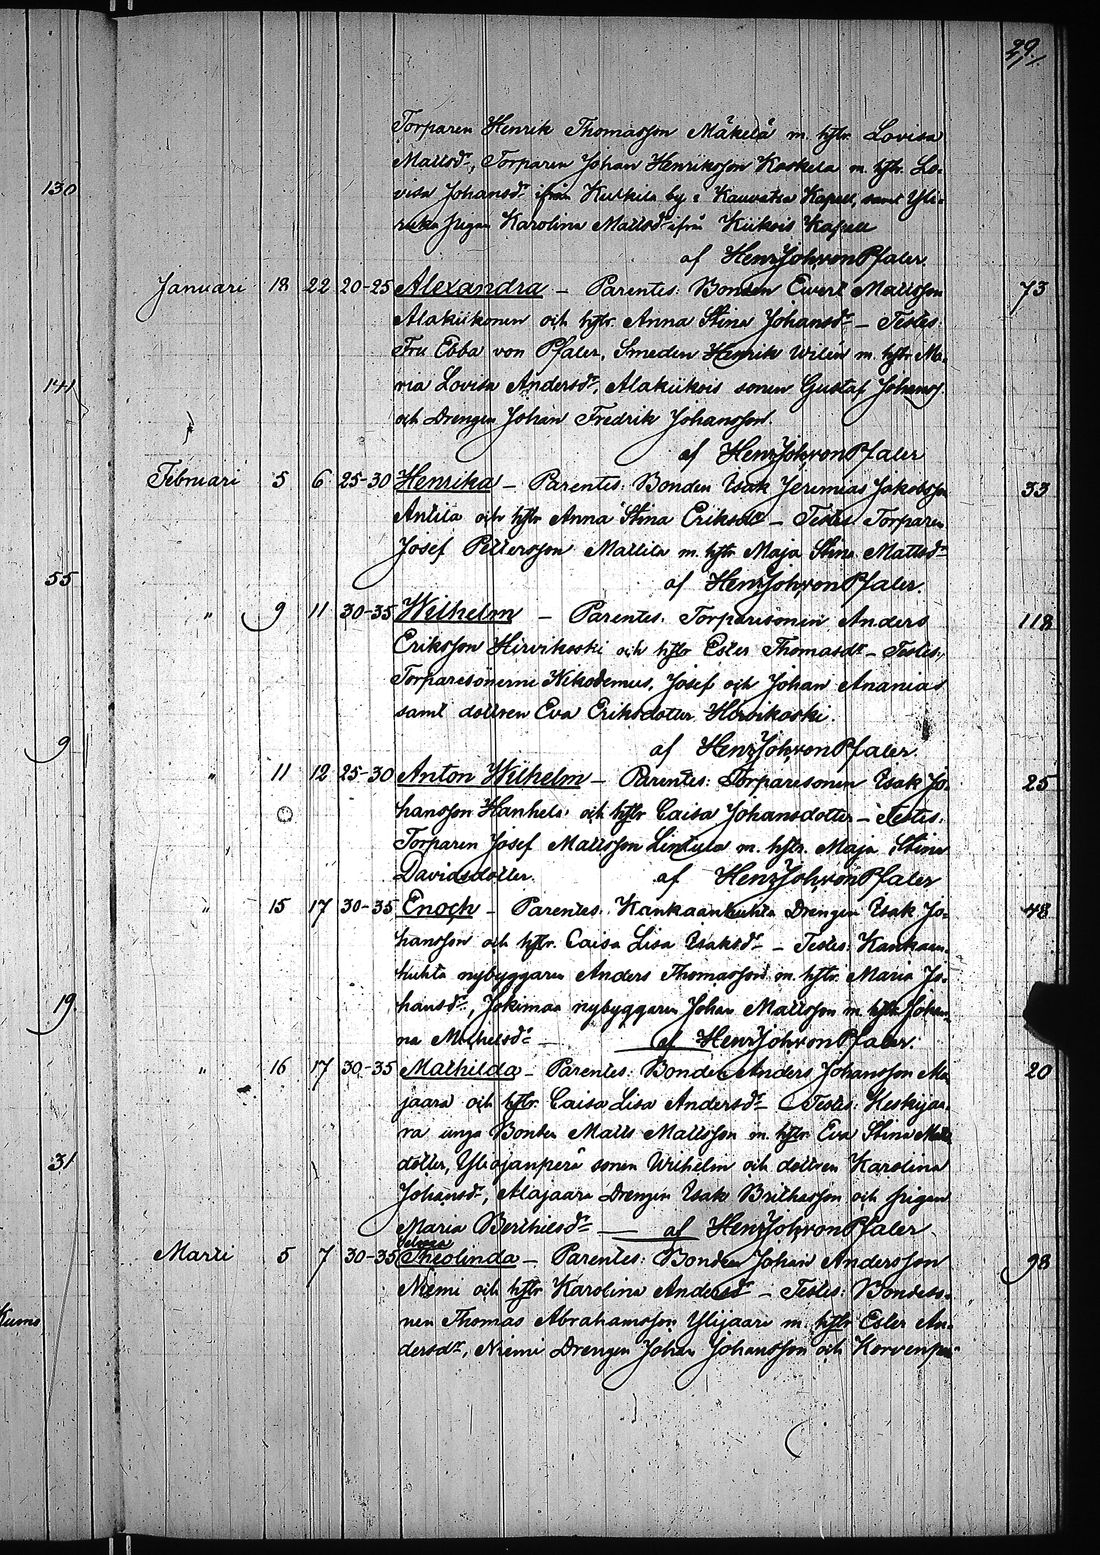 29.
Torparen Henrik Thomasson Mäkelä m. hstr. Lovisa
130
Mattsdr, Torparen Johan Henriksson Koskela m. hstr. Lo-
visa Johansdr ifrån Kulkila by i Kauvatsa Kapell, samt Yli-
pigan Karolina Mattsdr ifrån Kiikois Kapell
af HenrJohvonPfaler.
Januari 18 22 20-25 Alexandra — Parentes: Bonden Evert Mattsson 73
Alakiikonen och hstr. Anna Stina Johansdr — Testes:
Fru Ebba von Pfaler, Smeden Henrik Wilén m. hstr. Ma-
141
ria Lovisa Andersdr, Alakiikois sonen Gustaf Johanss.
och Drengen Johan Fredrik Johansson.
af HenrJohvonPfaler
Februari 5 6 25-30 Henrika — Parentes: Bonden Isak Jeremias Jakobsson 33
Antila och hstr Anna Stina Eriksdr — Testes Torparen
Josef Pettersson Mattila m. hstr Maja Stina Mattsdr
55
af HenrJohvonPfaler.
" 9 11 30-35 Wilhelm — Parentes. Torparesonen Anders 118
Eriksson Hirvikoski och hstr Ester Thomasdr — Testes,
Torparesönerne Nikodemus, Josef och Johan Ananias
samt dottren Eva Eriksdotter Hirvikoski.
9
af HenrJohvonPfaler.
" 11 12 25-30 Anton Wilhelm — Parentes: Torparesonen Isak Jo- 25
hansson Hanhela och hstr Caisa Johansdotter — Testes:
Torparen Josef Mattsson Lintula m. hstr. Maja Stina
Davidsdotter. af HenrJohvonPfaler
" 15 17 30-35 Enoch — Parentes: Kankaanhuhta Drengen Isak Jo- 48
hansson och hstr. Caisa Lisa Isaksdr — Testes: Kankaan-
huhta nybyggaren Anders Thomasson m. hstr. Maria Jo-
19.
hansdr, Jokimaa nybyggaren Johan Mattsson m. hstr Johan-
na Michelsdr — af HenrJohvonPfaler.
" 16 17 30-35 Mathilda — Parentes: Bonden Anders Johansson Ma- 20
jaara och hstr. Caisa Lisa Andersdr — Testes: Keskijaa-
ra unga Bonden Matts Mattsson m. hstr Eva Stina Matts
31
dotter, Yliojanperä sonen Wilhelm och dottren Karolina
Johansdr, Alajaara Drengen Isak Brithasson och pigan
Maria Berthelsdr — af HenrJohvonPfaler.
Selma
Marti 5 7 30-35 Theolinda — Parentes: Bonden Johan Andersson 98
Niemi och hstr Karolina Andersdr — Testes: Bondeso-
nen Thomas Abrahamsson Ylijaara m. hstr Ester An-
dersdr, Niemi Drengen Johan Johansson och Korvenpää